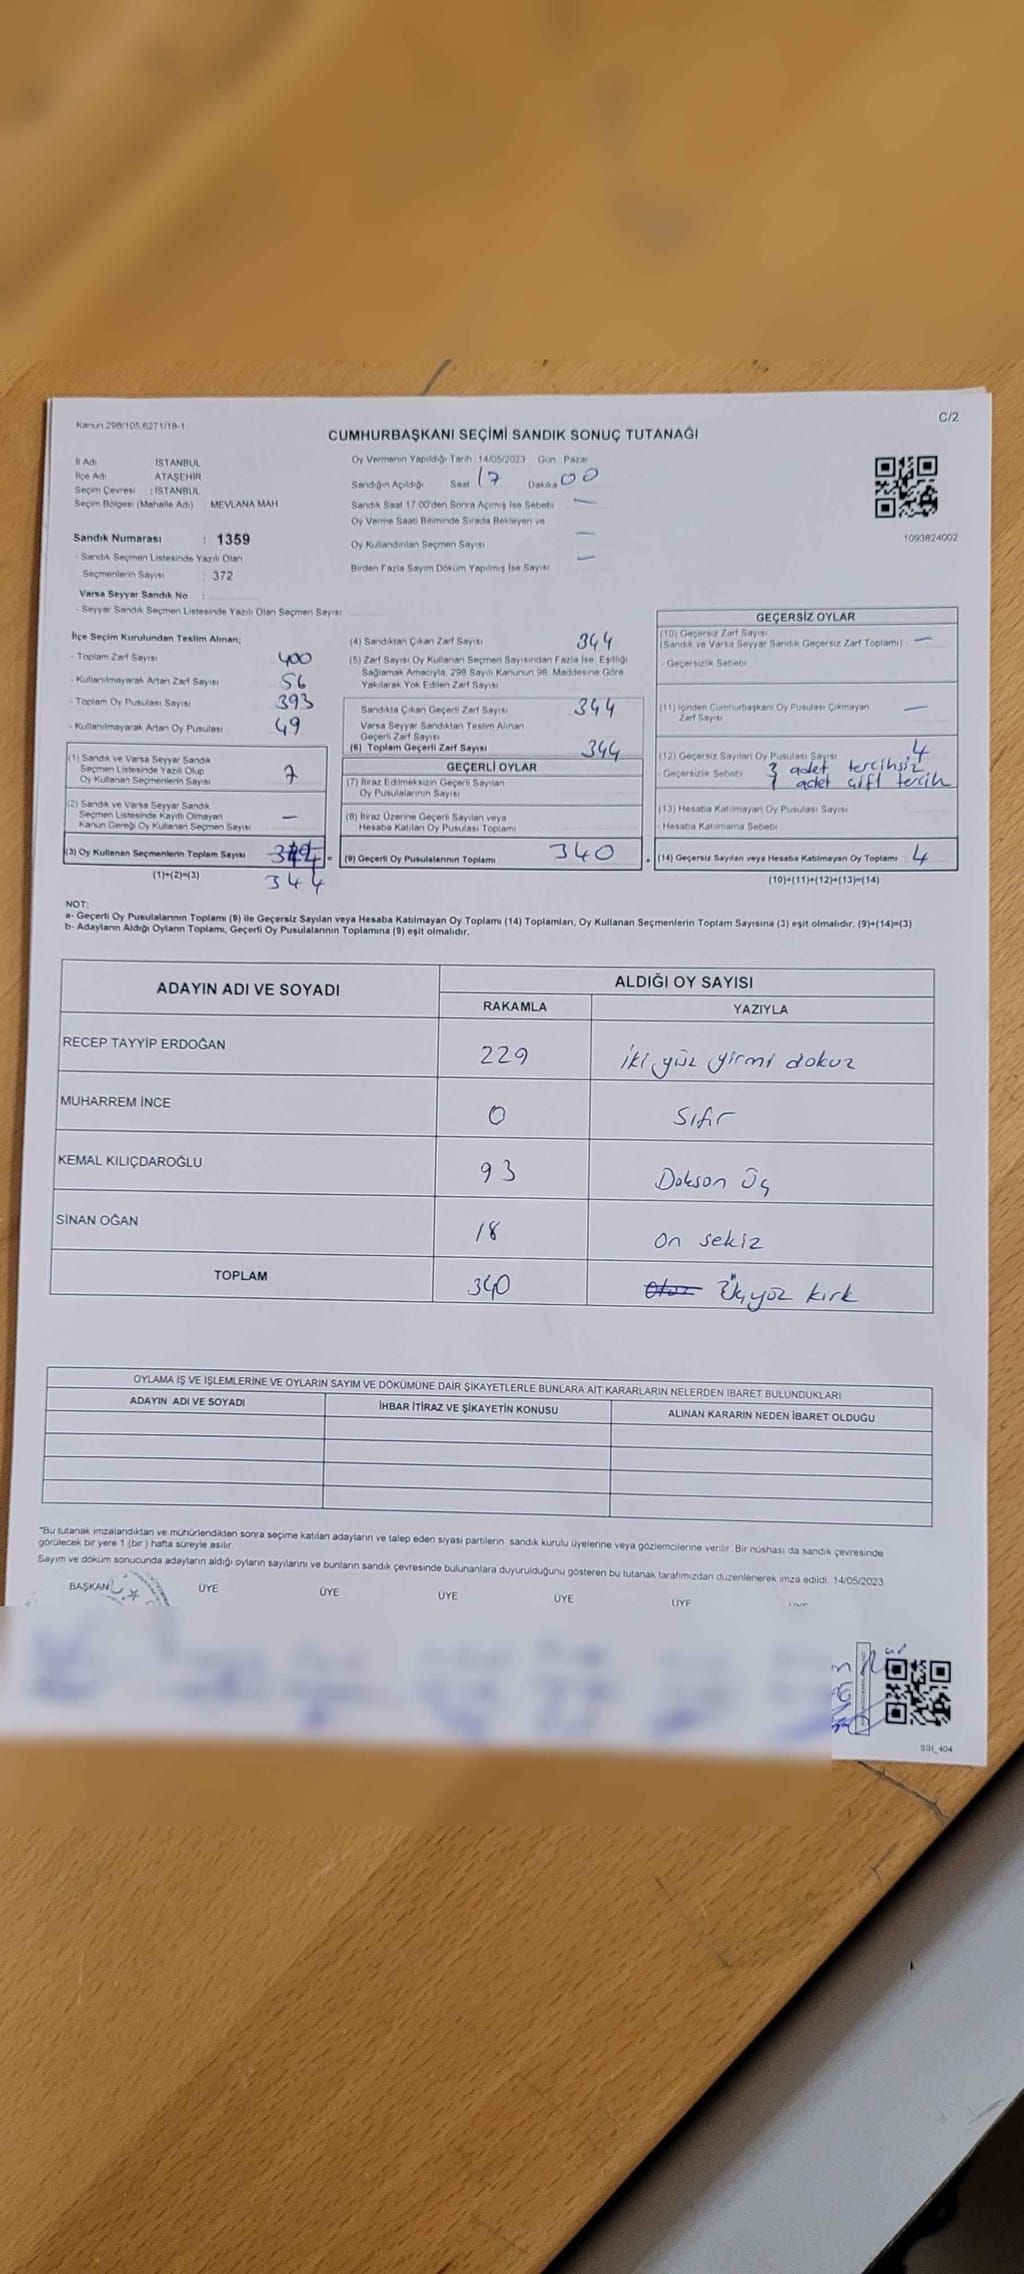 Kanun 298/105,6271/18-1
C/2
CUMHURBAŞKANI SEÇİMİ SANDIK SONUÇ TUTANAĞI
İl Adı İSTANBUL
İlçe Adı ATAŞEHİR
Seçim Çevresi : İSTANBUL
Seçim Bölgesi (Mahalle Adı) : MEVLANA MAH
Sandık Numarası : 1359
- Sandık Seçmen Listesinde Yazılı Olan
Seçmenlerin Sayısı : 372
Varsa Seyyar Sandık No :
- Seyyar Sandık Seçmen Listesinde Yazılı Olan Seçmen Sayısı
Oy Vermenin Yapıldığı Tarih :14/05/2023 Gün : Pazar
Sandığın Açıldığı Saat 17 Dakika 00
Sandık Saat 17.00'den Sonra Açımış İse Sebebi —
Oy Verme Saati Bitiminde Sırada Bekleyen ve
Oy Kullandırılan Seçmen Sayısı —
Birden Fazla Sayım Döküm Yapılmış İse Sayısı —
1093824002
İlçe Seçim Kurulundan Teslim Alınan;
- Toplam Zarf Sayısı 400
- Kullanılmayarak Artan Zarf Sayısı 56
- Toplam Oy Pusulası Sayısı 393
- Kullanılmayarak Artan Oy Pusulası 49
(1) Sandık ve Varsa Seyyar Sandık
Seçmen Listesinde Yazılı Olup
Oy Kullanan Seçmenlerin Sayısı 7
(2) Sandık ve Varsa Seyyar Sandık
Seçmen Listesinde Kayıtlı Olmayan
Kanun Gereği Oy Kullanan Seçmen Sayısı —
(3) Oy Kullanan Seçmenlerin Toplam Sayısı =
(1)+(2)=(3) 344
(4) Sandıktan Çıkan Zarf Sayısı 344
(5) Zarf Sayısı Oy Kullanan Seçmen Sayısından Fazla İse, Eşitliği
Sağlamak Amacıyla, 298 Sayılı Kanunun 98. Maddesine Göre
Yakılarak Yok Edilen Zarf Sayısı
Sandıkta Çıkan Geçerli Zarf Sayısı 344
Varsa Seyyar Sandıktan Teslim Alınan
Geçerli Zarf Sayısı
(6) Toplam Geçerli Zarf Sayısı 344
GEÇERLİ OYLAR
(7) İtiraz Edilmeksizin Geçerli Sayılan
Oy Pusulalarının Sayısı
(8) İtiraz Üzerine Geçerli Sayılan veya
Hesaba Katılan Oy Pusulası Toplamı
(9) Geçerli Oy Pusulalarının Toplamı 340
GEÇERSİZ OYLAR
(10) Geçersiz Zarf Sayısı
(Sandık ve Varsa Seyyar Sandık Geçersiz Zarf Toplamı) —
- Geçersizlik Sebebi
(11) İçinden Cumhurbaşkanı Oy Pusulası Çıkmayan
Zarf Sayısı —
(12) Geçersiz Sayılan Oy Pusulası Sayısı 4
- Geçersizlik Sebebi 3 adet tercihsiz
1 adet çift tercih
(13) Hesaba Katılmayan Oy Pusulası Sayısı
- Hesaba Katılmama Sebebi
(14) Geçersiz Sayılan veya Hesaba Katılmayan Oy Toplamı 4
(10)+(11)+(12)+(13)=(14)
NOT:
a- Geçerli Oy Pusulalarının Toplamı (9) ile Geçersiz Sayılan veya Hesaba Katılmayan Oy Toplamı (14) Toplamları, Oy Kullanan Seçmenlerin Toplam Sayısına (3) eşit olmalıdır. (9)+(14)=(3)
b- Adayların Aldığı Oyların Toplamı, Geçerli Oy Pusulalarının Toplamına (9) eşit olmalıdır.
ADAYIN ADI VE SOYADI ALDIĞI OY SAYISI
RAKAMLA YAZIYLA
RECEP TAYYİP ERDOĞAN 229 iki yüz yirmi dokuz
MUHARREM İNCE 0 Sıfır
KEMAL KILIÇDAROĞLU 93 Doksan Üç
SİNAN OĞAN 18 on sekiz
TOPLAM 340 Üçyüz kırk
OYLAMA İŞ VE İŞLEMLERİNE VE OYLARIN SAYIM VE DÖKÜMÜNE DAİR ŞİKAYETLERLE BUNLARA AİT KARARLARIN NELERDEN İBARET BULUNDUKLARI
ADAYIN ADI VE SOYADI İHBAR İTİRAZ VE ŞİKAYETİN KONUSU ALINAN KARARIN NEDEN İBARET OLDUĞU
"Bu tutanak imzalandıktan ve mühürlendikten sonra seçime katılan adayların ve talep eden siyasi partilerin sandık kurulu üyelerine veya gözlemcilerine verilir. Bir nüshası da sandık çevresinde
görülecek bir yere 1 (bir ) hafta süreyle asılır.
Sayım ve döküm sonucunda adayların aldığı oyların sayılarını ve bunların sandık çevresinde bulunanlara duyurulduğunu gösteren bu tutanak tarafımızdan düzenlenerek imza edildi. 14/05/2023
BAŞKAN ÜYE ÜYE ÜYE ÜYE ÜYE
SSI_404